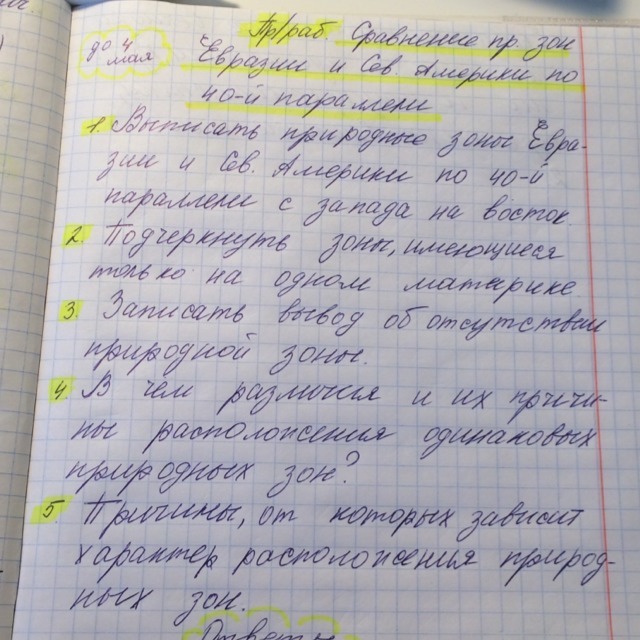 до 4
мая
Пр/раб. Сравнение пр. зон
Евразии и Сев. Америки по
40-й параллели
1. Выписать природные зоны Евра-
зии и Сев. Америки по 40-й
параллели с запада на восток.
2. Подчеркнуть зоны, имеющиеся
только на одном материке.
3. Записать вывод об отсутствии
природной зоны.
4. В чем различия и их причи-
ны расположения одинаковых
природных зон?
5. Причины, от которых зависит
характер расположения природ-
ных зон.
Ответы